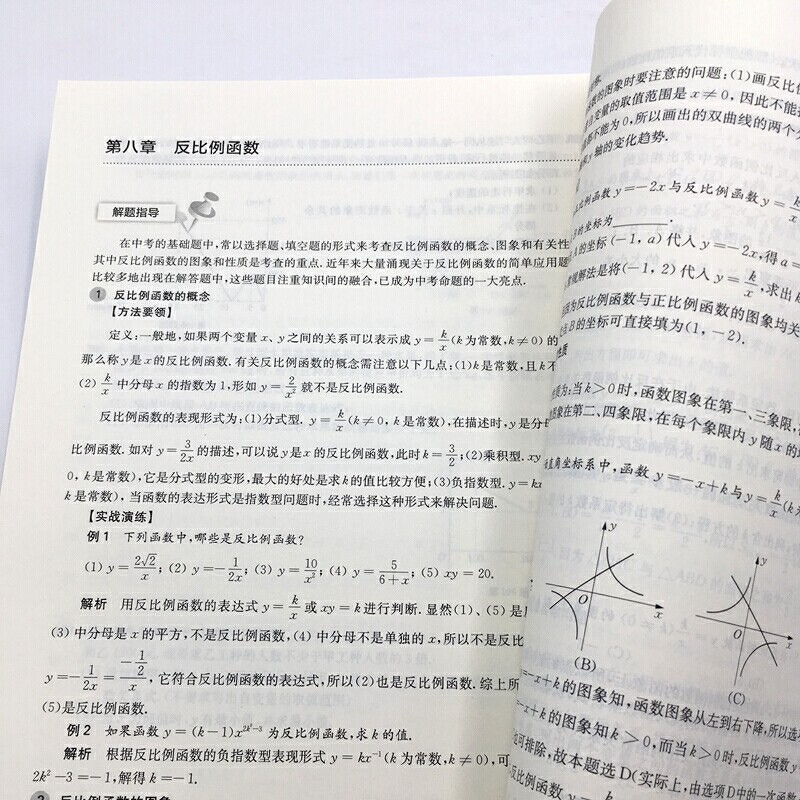 第八章 反比例函数
解题指导
在中考的基础题中,常以选择题、填空题的形式来考查反比例函数的概念、图象和有关性
其中反比例函数的图象和性质是考查的重点.近年来大量涌现关于反比例函数的简单应用题
比较多地出现在解答题中,这些题目注重知识间的融合,已成为中考命题的一大亮点.
1 反比例函数的概念
【方法要领】
定义:一般地,如果两个变量 x、y 之间的关系可以表示成 y=k/x(k 为常数,k≠0)的
那么称 y 是 x 的反比例函数.有关反比例函数的概念需注意以下几点:(1)k 是常数,且 k
(2) k/x 中分母 x 的指数为 1,形如 y=2/x² 就不是反比例函数.
反比例函数的表现形式为:(1)分式型. y=k/x(k≠0,k 是常数),在描述时,y 是分
比例函数.如对 y=3/2x 的描述,可以说 y 是 x 的反比例函数,此时 k=3/2;(2)乘积型. xy
0,k 是常数),它是分式型的变形,最大的好处是求 k 的值比较方便;(3)负指数型. y=kx
k 是常数),当函数的表达形式是指数型问题时,经常选择这种形式来解决问题.
【实战演练】
例 1 下列函数中,哪些是反比例函数?
(1) y=2√2/x; (2) y=-1/2x; (3) y=10/x²; (4) y=5/6+x; (5) xy=20.
解析 用反比例函数的表达式 y=k/x 或 xy=k 进行判断.显然(1)、(5)是
(3)中分母是 x 的平方,不是反比例函数,(4)中分母不是单独的 x,所以不是反比
y=-1/2x=(-1/2)/x,它符合反比例函数的表达式,所以(2)也是反比例函数.综上所
(5)是反比例函数.
例 2 如果函数 y=(k-1)x^(2k²-3) 为反比例函数,求 k 的值.
解析 根据反比例函数的负指数型表现形式 y=kx⁻¹(k 为常数,k≠0),可
2k²-3=-1,解得 k=-1.
2 反比例函数的图象
的图象时要注意的问题:(1)画反比
自变量的取值范围是 x≠0,因此不能
都不能为 0,所以画出的双曲线的两个
y 轴的变化趋势.
比例函数 y=-2x 与反比例函数 y=k/x
B 的坐标为
A 的坐标(-1,a)代入 y=-2x,得 a=
常规解法是将(-1,2)代入 y=k/x,求出
因为反比例函数与正比例函数的图象均关
点 B 的坐标可直接填为(1,-2).
性质
性质为:当 k>0 时,函数图象在第一、三象限,
图象在第二、四象限,在每个象限内 y 随 x 的
直角坐标系中,函数 y=-x+k 与 y=k/x(k
y
O
x
(B)
y
O
x
(C)
y=-x+k 的图象知,函数图象从左到右下降,所以选
=-x+k 的图象知 k>0,而当 k>0 时,反比例函数 y
也可排除,故本题选 D(实际上,由选项 D 中的一次函
反比例函数 y=